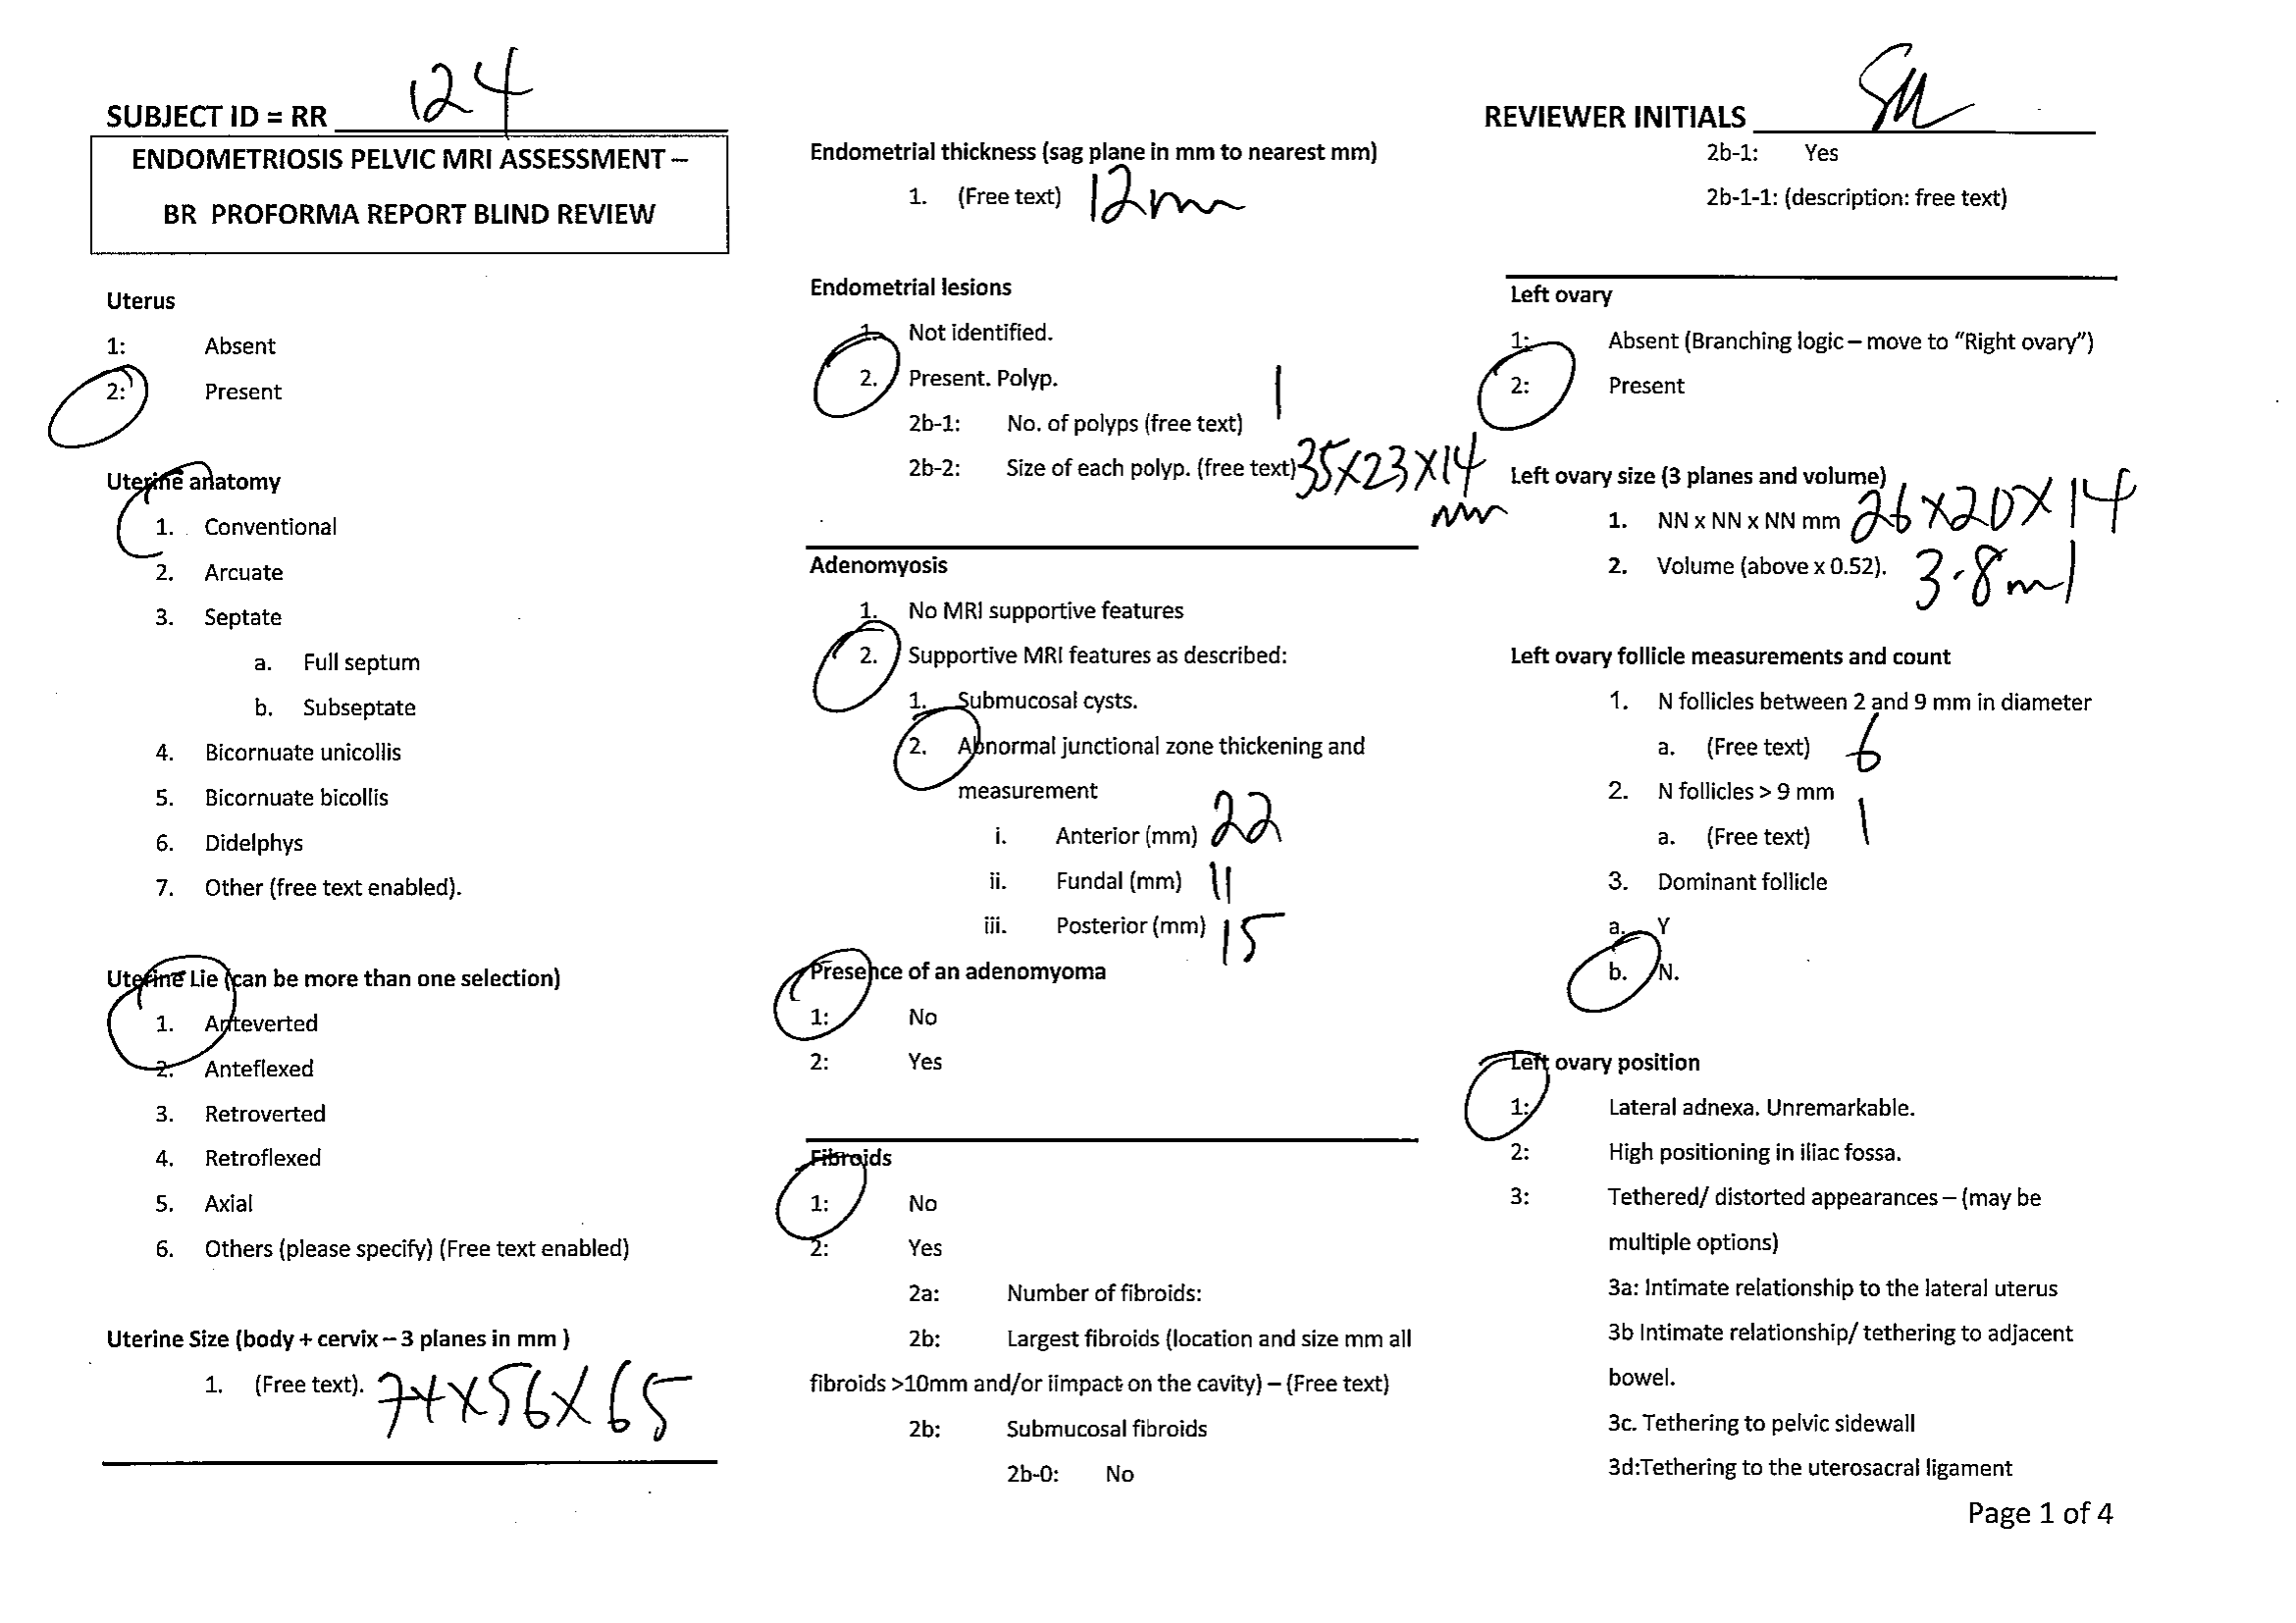 SUBJECT ID = RR 124
ENDOMETRIOSIS PELVIC MRI ASSESSMENT –
BR PROFORMA REPORT BLIND REVIEW
Uterus
1: Absent
2: Present
Uterine anatomy
1. Conventional
2. Arcuate
3. Septate
a. Full septum
b. Subseptate
4. Bicornuate unicollis
5. Bicornuate bicollis
6. Didelphys
7. Other (free text enabled).
Uterine Lie (can be more than one selection)
1. Anteverted
2. Anteflexed
3. Retroverted
4. Retroflexed
5. Axial
6. Others (please specify) (Free text enabled)
Uterine Size (body + cervix – 3 planes in mm )
1. (Free text). 74x56x65
Endometrial thickness (sag plane in mm to nearest mm)
1. (Free text) 12mm
Endometrial lesions
1. Not identified.
2. Present. Polyp.
2b-1: No. of polyps (free text) 1
2b-2: Size of each polyp. (free text) 35x23x14
mm
Adenomyosis
1. No MRI supportive features
2. Supportive MRI features as described:
1. Submucosal cysts.
2. Abnormal junctional zone thickening and
measurement
i. Anterior (mm) 22
ii. Fundal (mm) 11
iii. Posterior (mm) 15
Presence of an adenomyoma
1: No
2: Yes
Fibroids
1: No
2: Yes
2a: Number of fibroids:
2b: Largest fibroids (location and size mm all
fibroids >10mm and/or iimpact on the cavity) – (Free text)
2b: Submucosal fibroids
2b-0: No
REVIEWER INITIALS SM
2b-1: Yes
2b-1-1: (description: free text)
Left ovary
1: Absent (Branching logic – move to “Right ovary”)
2: Present
Left ovary size (3 planes and volume)
1. NN x NN x NN mm 26x20x14
2. Volume (above x 0.52). 3.8ml
Left ovary follicle measurements and count
1. N follicles between 2 and 9 mm in diameter
a. (Free text) 6
2. N follicles > 9 mm
a. (Free text) 1
3. Dominant follicle
a. Y
b. N.
Left ovary position
1: Lateral adnexa. Unremarkable.
2: High positioning in iliac fossa.
3: Tethered/ distorted appearances – (may be
multiple options)
3a: Intimate relationship to the lateral uterus
3b Intimate relationship/ tethering to adjacent
bowel.
3c. Tethering to pelvic sidewall
3d:Tethering to the uterosacral ligament
Page 1 of 4